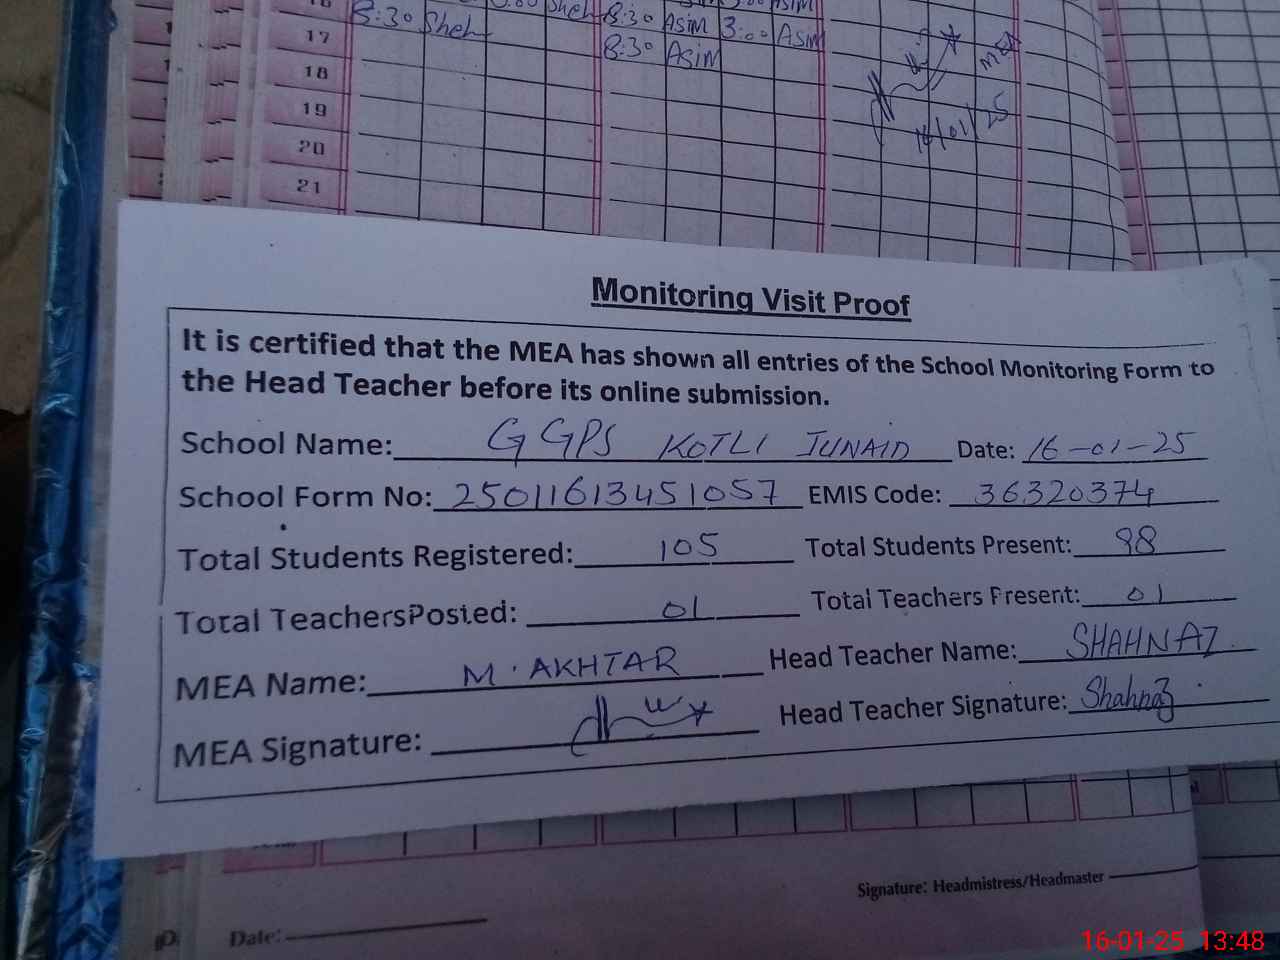 8:30 Sheh 8:30 ASIM 3:00 ASIM
17 8:30 ASIM
18 MEA
19 16/01/25
20
21
Monitoring Visit Proof
It is certified that the MEA has shown all entries of the School Monitoring Form to
the Head Teacher before its online submission.
School Name: GGPS KOTLI JUNAID Date: 16-01-25
School Form No: 25011613451057 EMIS Code: 36320374
Total Students Registered: 105 Total Students Present: 98
Total TeachersPosted: 01 Total Teachers Present: 01
MEA Name: M. AKHTAR Head Teacher Name: SHAHNAZ
MEA Signature: Head Teacher Signature: Shahnaz
Signature: Headmistress/Headmaster
Date:
16-01-25 13:48